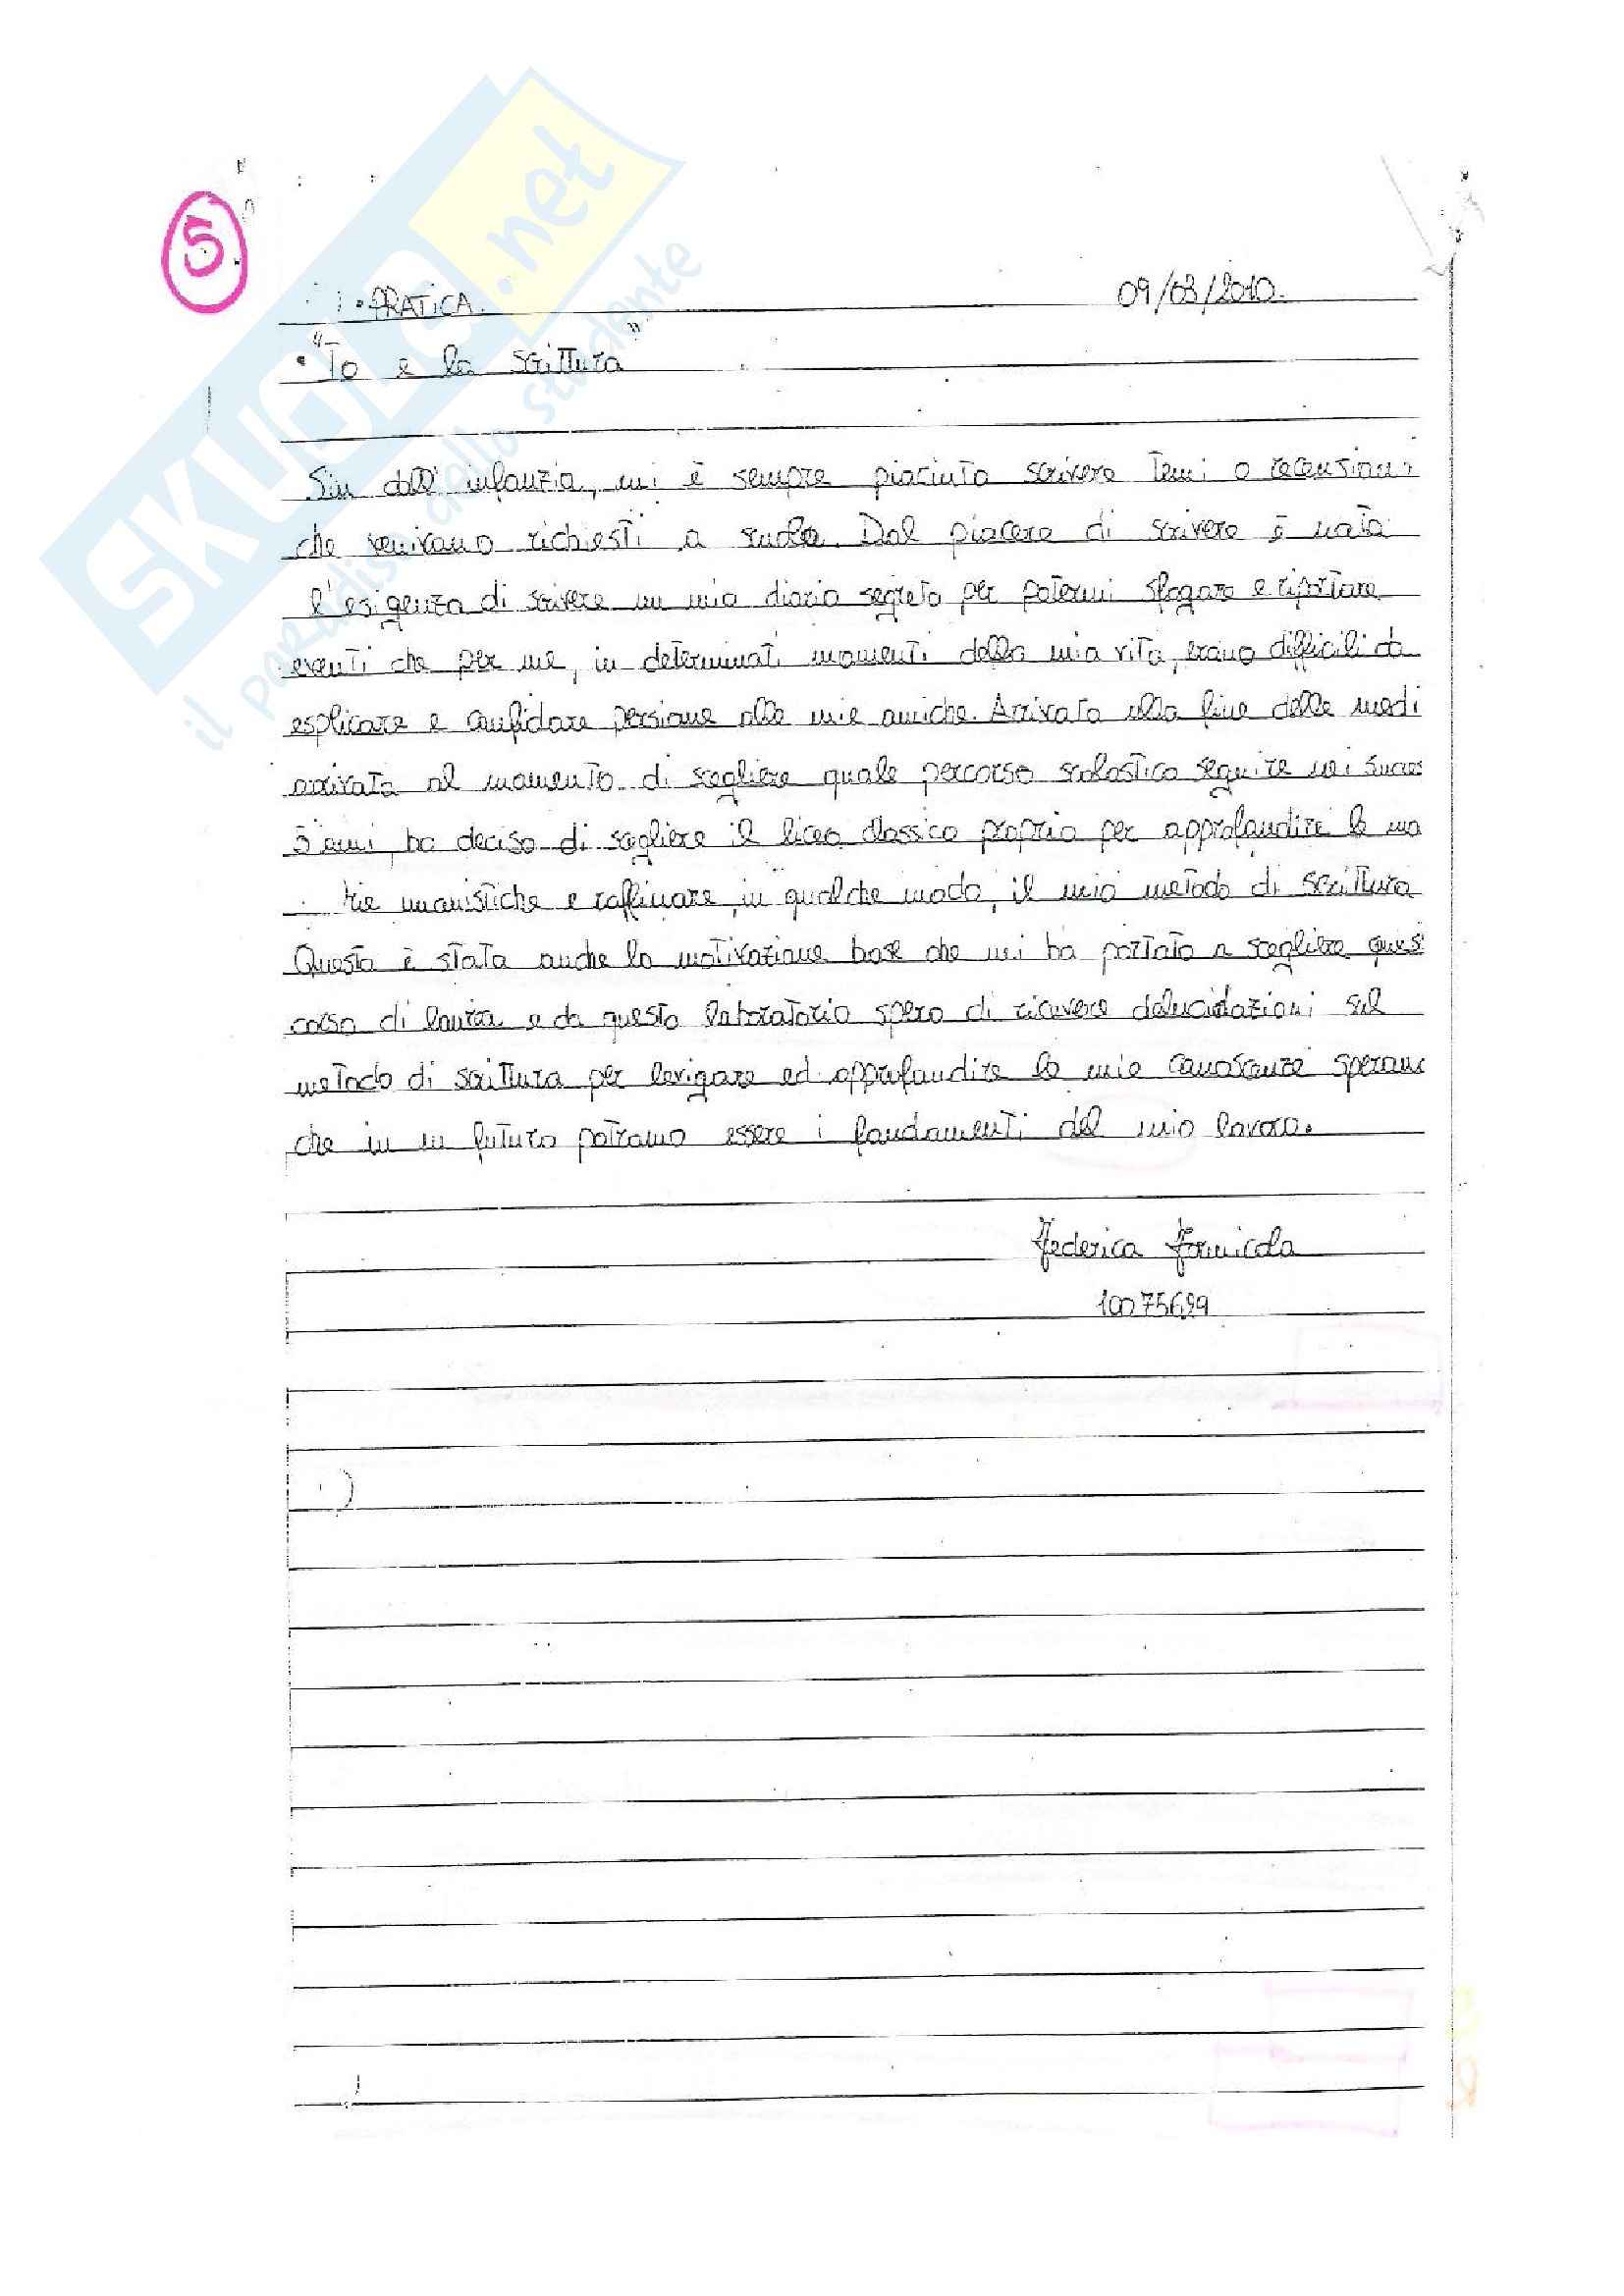 5
• PRATICA.
09/03/2010.
• "Io e la scrittura"
Sin dall'infanzia, mi è sempre piaciuto scrivere temi o recensioni
che venivano richiesti a scuola. Dal piacere di scrivere è nata
l'esigenza di scrivere un mio diario segreto per potermi sfogare e riportare
eventi che per me, in determinati momenti della mia vita, erano difficili da
esplicare e confidare persione alle mie amiche. Arrivata alla fine delle medi
arrivata al momento di scegliere quale percorso scolastico seguire nei succes
5 anni, ho deciso di scegliere il liceo classico proprio per approfondire le ma
terie umanistiche e raffinare, in qualche modo, il mio metodo di scrittura
Questa è stata anche la motivazione base che mi ha portato a scegliere quest
corso di laurea e da questo laboratorio spero di ricevere delucidazioni sul
metodo di scrittura per levigare ed approfondire le mie conoscenze speranc
che in un futuro potranno essere i fondamenti del mio lavoro.
Federica Formicola
10075699
SKUOLA.net
il paradiso dello studente